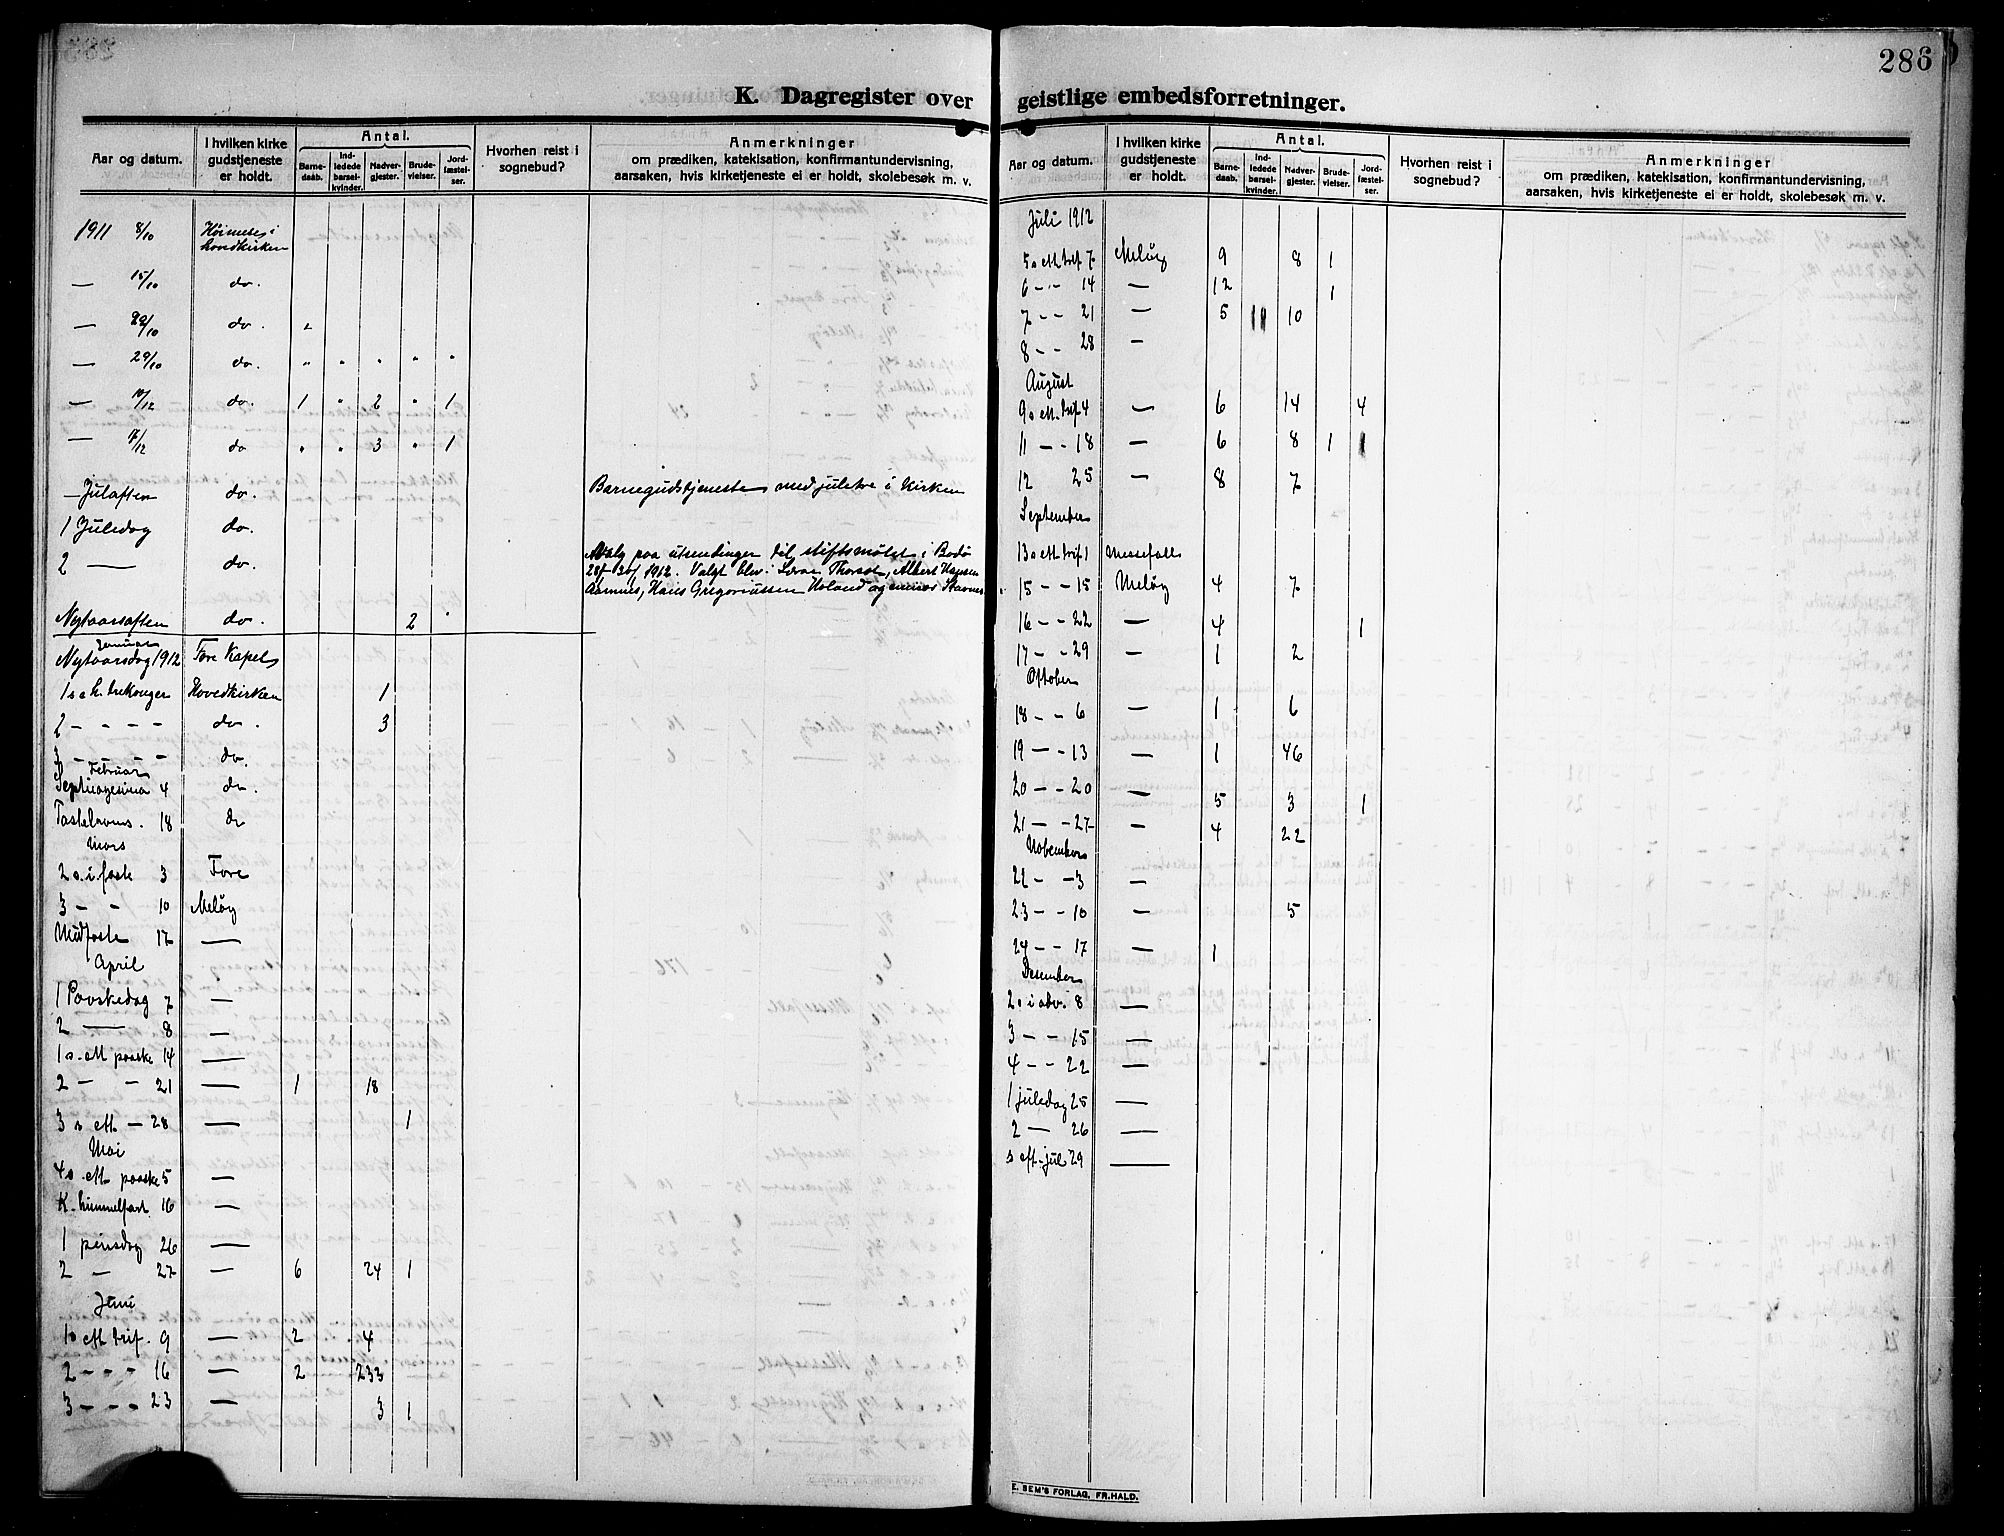 286
K. Dagregister over geistlige embedsforretninger.
Aar og datum. | I hvilken kirke gudstjeneste er holdt. | Antal. | Barnedaab. | Indledede barselkvinder. | Nadvergjester. | Brudevielser. | Jordfæstelser. | Hvorhen reist i sognebud? | Anmerkninger om prædiken, katekisation, konfirmantundervisning, aarsaken, hvis kirketjeneste ei er holdt, skolebesøk m. v.
1911 8/10 Høimesse i
hovedkirken
— 15/10 do.
— 22/10 do. 2
— 29/10 do. " " " " "
— 10/12 do. 1 " 2 " 1
— 17/12 do " " 3 " 1
— Julaften do. Barnegudstjeneste med juletre i kirken
1 Juledag do.
2 — do. Valg paa utsendinger til stiftsmøtet i Bodø
28/- 30/ 1912. Valgt blev: Thorsot, Albert Hansen
Aamnes, Hans Gregoriussen Holand og Stavnes
Nytaarsaften do. 2 "
Januar
Nytaarsdag 1912 Fore Kapel
1 s e h. trekonger Hovedkirken 1
2 - - - - do. 3
3 - - - do.
Februar
Septuagesima 4 do.
Fastelavns. 18 do
Mars
2 s. i. faste 3 Fore
3 - - 10 Meløy
Midfaste 17 —
April
1 Paaskedag 7 —
2 — 8 —
1 s. ett paaske 14 —
2 - - 21 — 1 18
3 s ett - 28 — 1
Mai
4 s. ett paaske 5 —
K. himmelfart 16 —
1 pinsdag 26 —
2 — 27 — 6 24 1
Juni
1 s ett tref. 9 — 2 4
2 - - - 16 — 2 233
3 - - - 23 — 3 1
Aar og datum. | I hvilken kirke gudstjeneste er holdt. | Antal. | Barnedaab. | Indledede barselkvinder. | Nadvergjester. | Brudevielser. | Jordfæstelser. | Hvorhen reist i sognebud? | Anmerkninger om prædiken, katekisation, konfirmantundervisning, aarsaken, hvis kirketjeneste ei er holdt, skolebesøk m. v.
Juli 1912
5 s ett tref 7 Meløy 9 8 1
6 - - 14 — 12 1
7 - - 21 — 5 10
8 - - 28 —
August
9 s ett. tref 4 — 6 14 4
11 - - 18 — 6 8 1 1
12 25 — 8 7
September
13 s ett tref 1 Messefall
15 - - 15 Meløy 4 7
16 - - 22 — 4 1
17 - - 29 — 1 2
Oktober
18 - - 6 — 1 6
19 - - 13 — 1 46
20 - - 20 — 5 3 1
21 - - 27 — 4 22
November
22 - - 3 —
23 - - 10 — 5
24 - - 17 — 1
Desember
2 s i adv. 8 —
3 - - 15 —
4 - - 22 —
1 juledag 25 —
2 — 26 —
s eft. jul 29 —
E. SEM'S FORLAG, FR.HALD.